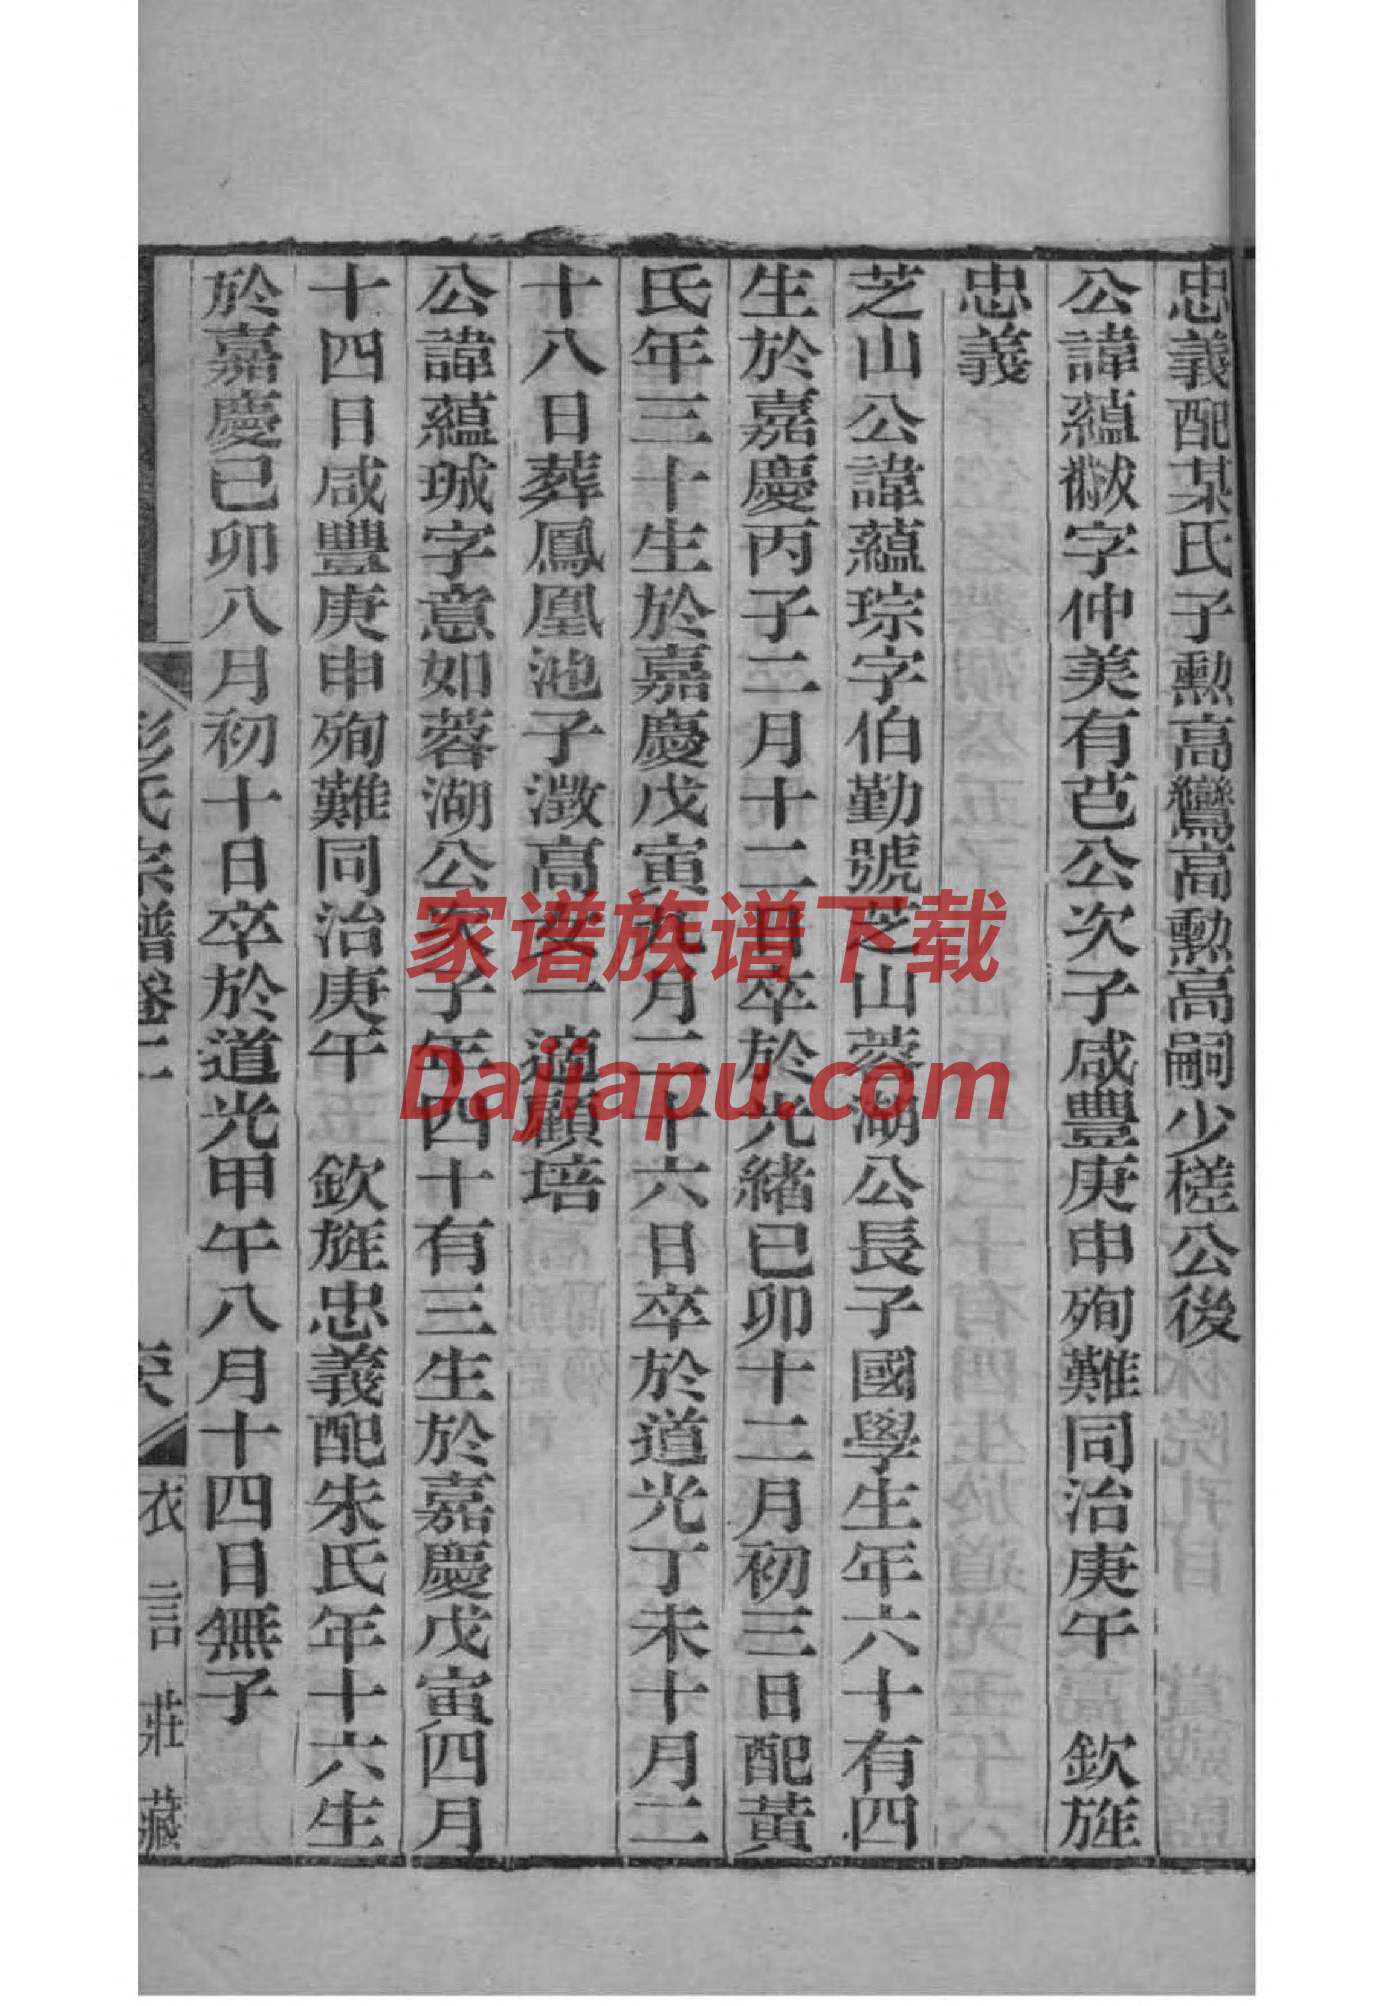 忠義配某氏子勲高鸞高勲高嗣少槎公後
公諱蘊黻字仲美有芑公次子咸豐庚申殉難同治庚午　欽旌
忠義
芝山公諱蘊琮字伯勤號芝山蓉湖公長子國學生年六十有四
生於嘉慶丙子二月十二日卒於光緒己卯十二月初三日配黃
氏年三十生於嘉慶戊寅九月二十六日卒於道光丁未十月二
十八日葬鳳凰池子澂高女一適顧培
公諱蘊珹字意如蓉湖公次子年四十有三生於嘉慶戊寅四月
十四日咸豐庚申殉難同治庚午　欽旌忠義配朱氏年十六生
於嘉慶己卯八月初十日卒於道光甲午八月十四日無子
彭氏宗譜卷二
衣言莊藏
家谱族谱下载
Dajiapu.com